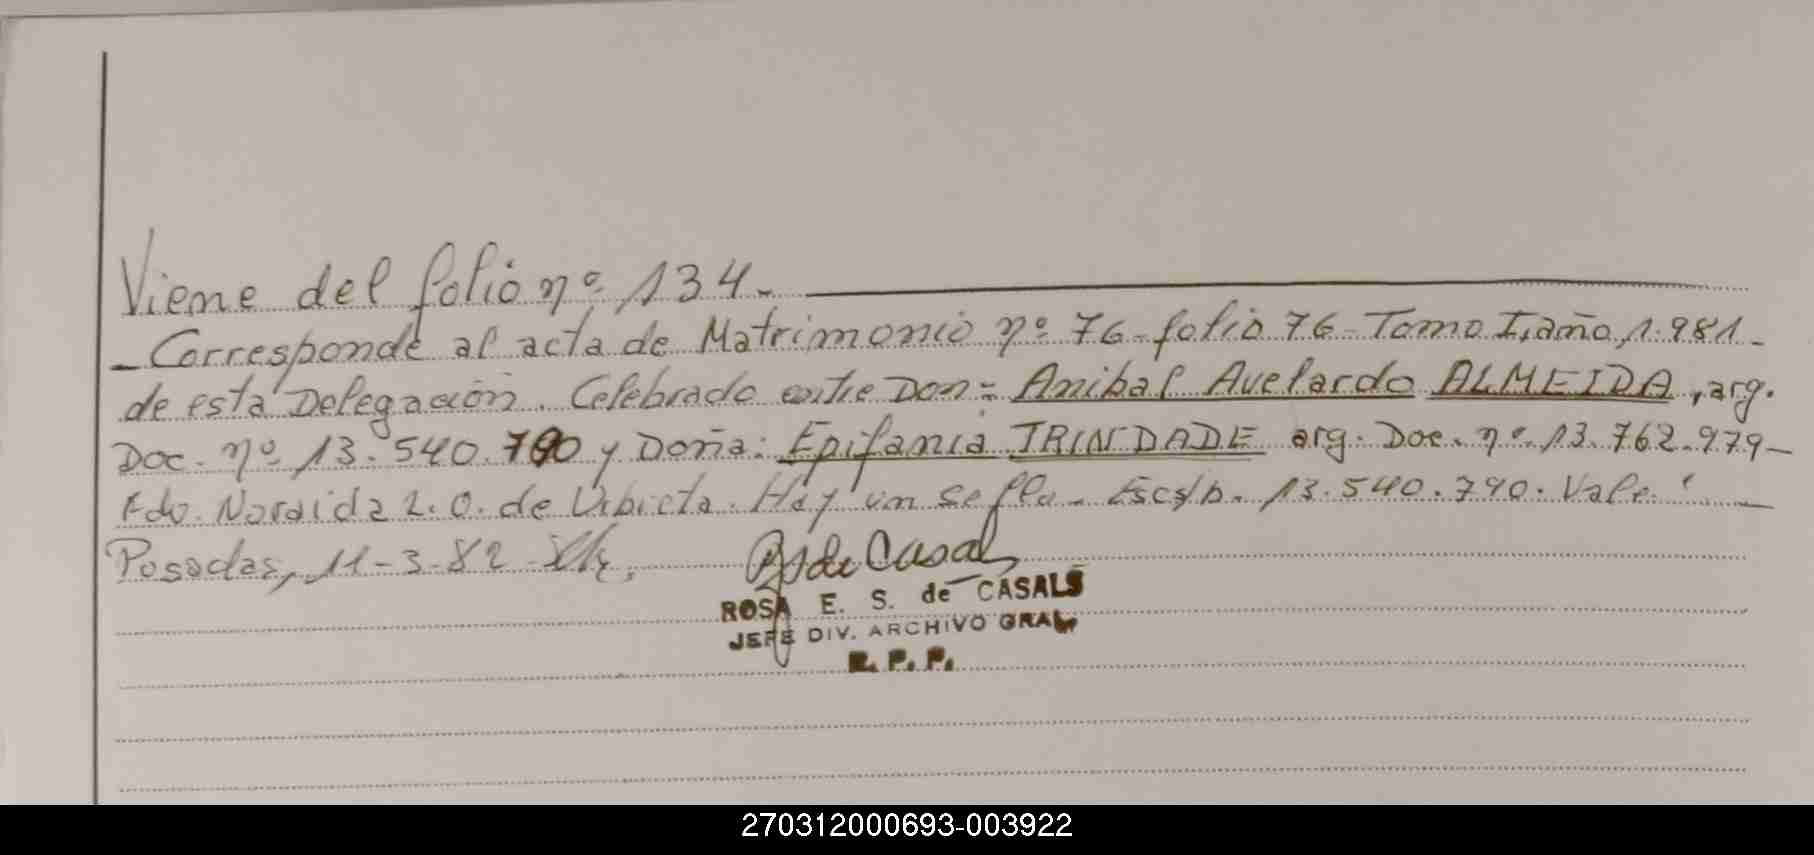 Viene del folio nº 134.
- Corresponde al acta de Matrimonio nº 76 - folio 76 - Tomo I, año 1.981 -
de esta Delegación. Celebrado entre Don: Anibal Avelardo ALMEIDA, arg.
Doc. nº 13.540.790 y Doña: Epifania TRINDADE arg. Doc. nº 13.762.979 -
Fdo. Noraida Z. O. de Urbieta. Hay un sello. Esc s/b. 13.540.790. Vale.
Posadas, 11-3-82
ROSA E. S. de CASALS
JEFE DIV. ARCHIVO GRAL.
R. P. P.
270312000693-003922